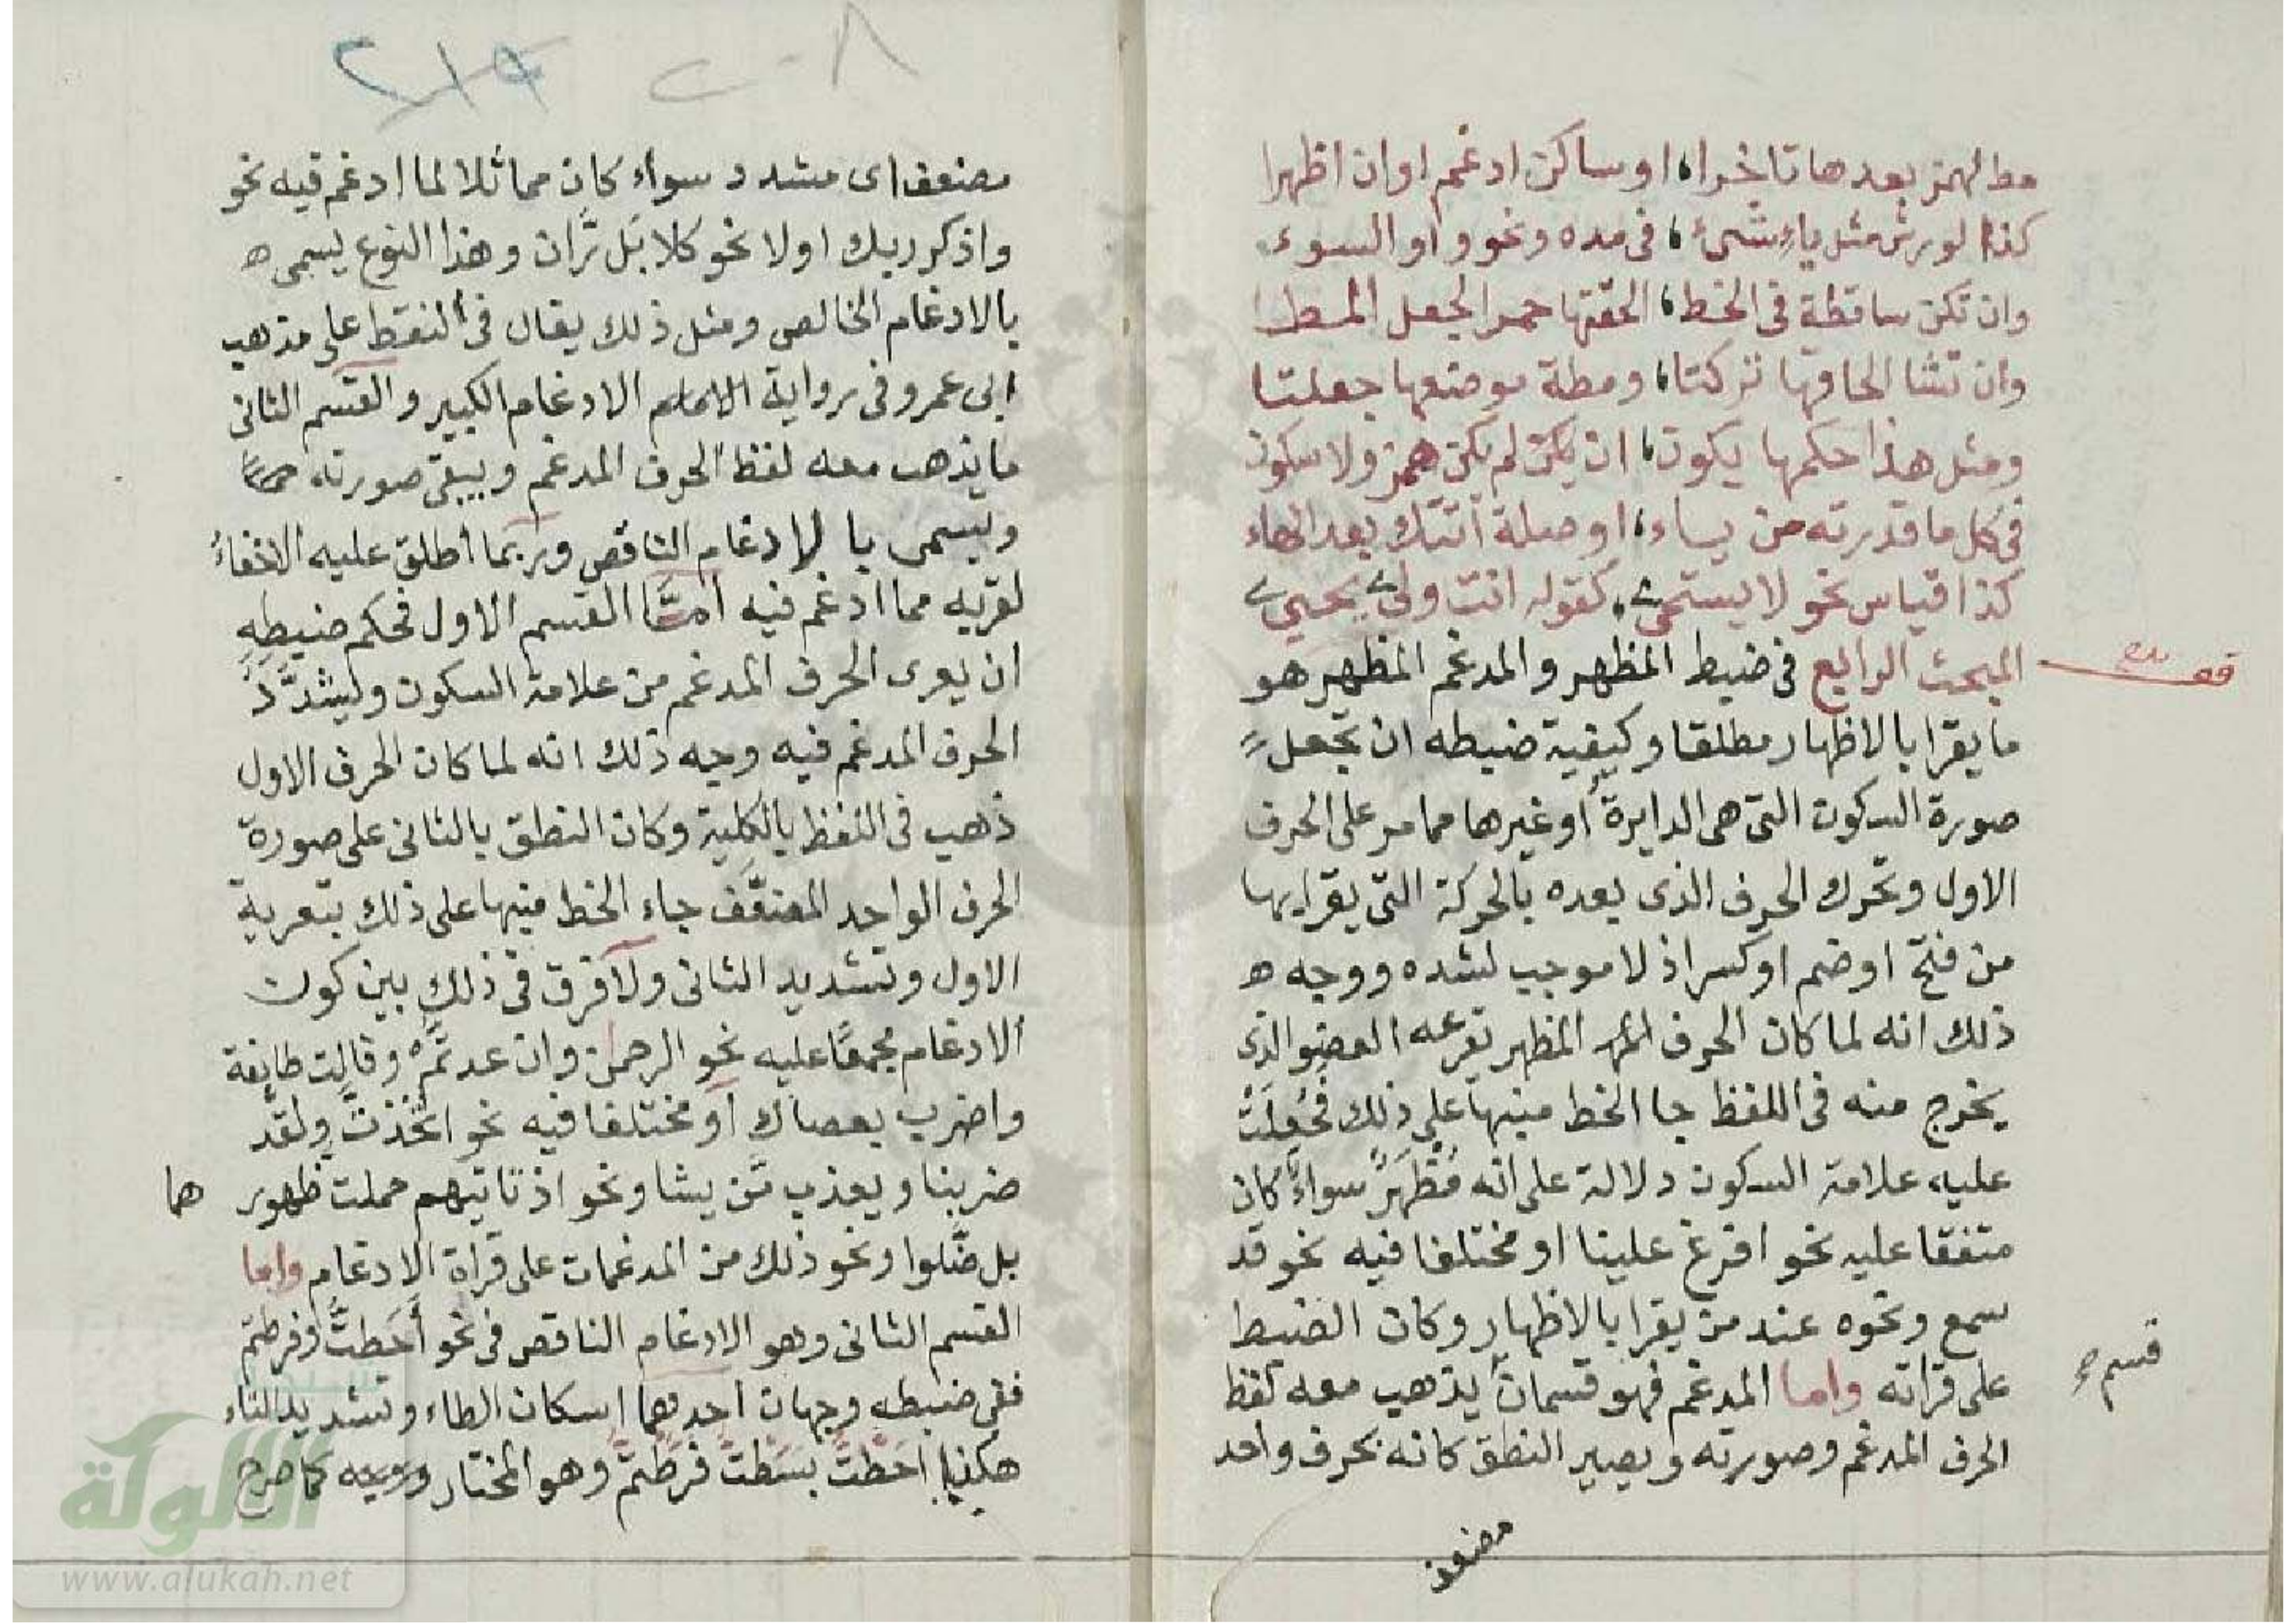 مط لهمز بعدها تاخرا، او ساكن ادغم او ان اظهرا
كذا لورش مثل ياء شيء، في مده ونحو واو السوء
وان تكن ساقطة في الخط، الحقتها حمرا لجعل المط
وان تشا الحاقها تركتا، ومطة موضعها جعلتا
ومثل هذا حكمها يكون، ان يكن لم يكن همز ولا سكون
في كل ما قد زدته من ياء، او صلة اتتك بعد الهاء
كذا قياس نحو لا يستحي، كقوله انت ولي يحيي
المبحث الرابع في ضبط المظهر والمدغم المظهر هو
ما يقرا بالاظهار مطلقا وكيفية ضبطه ان تجعل
صورة السكون التي هي الدايرة أو غيرها مما مر على الحرف
الاول وتحرك الحرف الذي بعده بالحركة التي يقرا بها
من فتح او ضم او كسر اذ لا موجب لشده ووجه ه
ذلك انه لما كان الحرف المظهر يقرعه العضو الذي
يخرج منه في اللفظ جا الخط منبها على ذلك فجُعِلَتْ
عليه علامة السكون دلالة على انه مُظْهَرٌ سواءً كان
متفقا عليه نحو افرغ علينا او مختلفا فيه نحو قد
سمع ونحوه عند من يقرا بالاظهار وكان الضبط
على قراته واما المدغم فهو قسمان يذهب معه لفظ
قسم
الحرف المدغم وصورته ويصير النطق كانه بحرف واحد
مضعف
٢٠٨
٢١٩
مضعف اى مشدد سواء كان مماثلا لما ادغم فيه نحو
واذكر ربك اولا نحو كلا بَل رَّان وهذا النوع يسمى ه
بالادغام الخالص ومثل ذلك يقال في النقط على مذهب
ابي عمرو في رواية الادغام الكبير والقسم الثاني
ما يذهب معه لفظ الحرف المدغم ويبقى صورته
ويسمى بالادغام الناقص وربما اطلق عليه الاخفاء
لقربه مما ادغم فيه امَّا القسم الاول فحكم ضبطه
ان يعرى الحرف المدغم من علامة السكون ويشدَّدَ
الحرف المدغم فيه وجه ذلك انه لما كان الحرف الاول
ذهب في اللفظ بالكلية وكان النطق بالثاني على صورة
الحرف الواحد المضعَّف جاء الخط منبها على ذلك بتعرية
الاول وتشديد الثاني ولا فرق في ذلك بين كون
الادغام مجمعًا عليه نحو الرحمن وان عدتُّم وقالت طايفة
واضرب بعصاك او مختلفا فيه نحو اتخذتُّ ولقد
ضربنا ويعذب مَّن يشا ونحو اذ تاتيهم حملت ظهور هما
بل ضَّلوا ونحو ذلك من المدغمات على قراة الادغام واما
القسم الثاني وهو الادغام الناقص في نحو أَحَطتُّ وفرطتم
ففي ضبطه وجهان احدهما اسكان الطاء وتشديد التاء
هكذا أحَطْتُّ بسَطْتَّ فرَّطْتُّمْ وهو المختار كما صرح
الألوكة
www.alukah.net